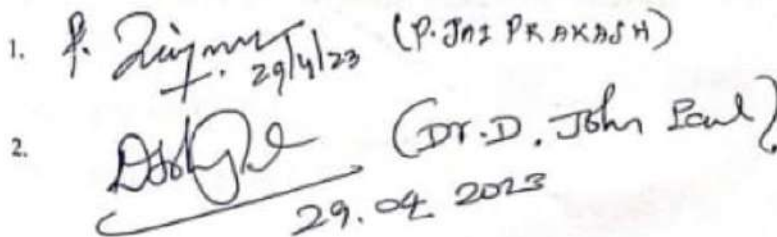 1. 29/4/23 (P. JAI PRAKASH)
2. (Dr. D. John Paul)
29.04 2023